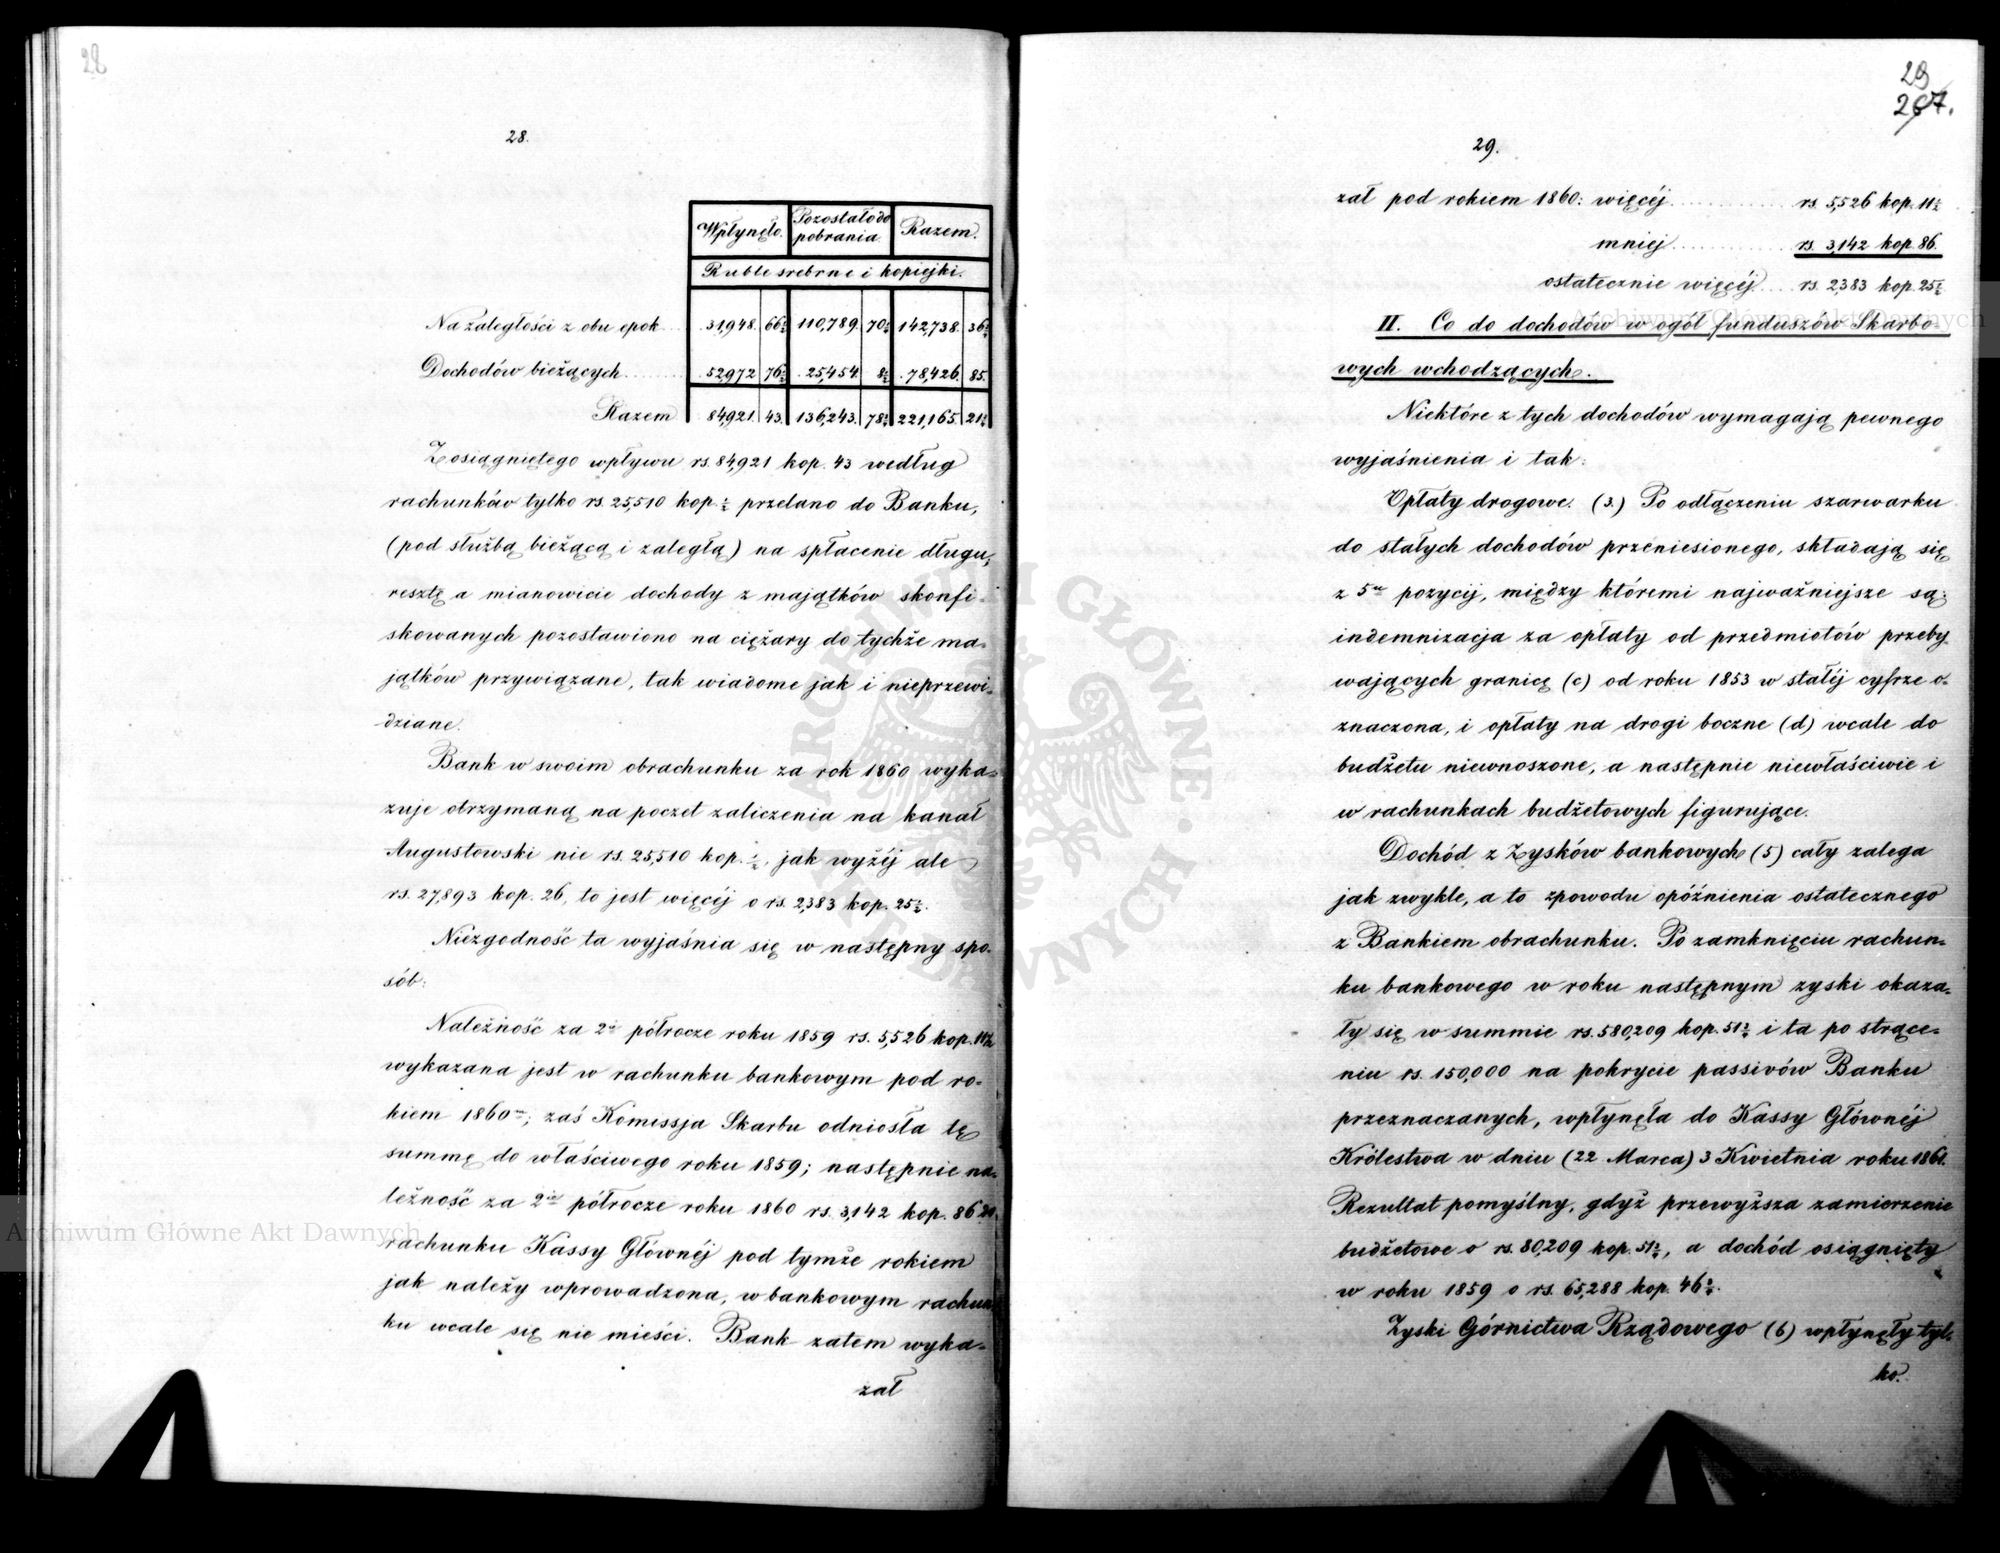 28
28.
Wpłynęło. Pozostało do pobrania. Razem.
Ruble srebrne i kopiejki.
Na zaległości z obu epok 31,948. 66½ 110,789. 70½ 142,738. 36½
Dochodów bieżących 52,972 76½ 25,454. 8½ 78,426. 85.
Razem 84,921. 43. 136,243. 78½ 221,165. 21½
Z osiągniętego wpływu rs. 84,921 kop. 43 według
rachunków tylko rs. 25,510 kop. ½ przelano do Banku,
(pod służbą bieżącą i zaległą) na spłacenie długu,
resztę a mianowicie dochody z majątków skonfi-
skowanych pozostawiono na ciężary do tychże ma-
jątków przywiązane, tak wiadome jak i nieprzewi-
dziane.
Bank w swoim obrachunku za rok 1860 wyka-
zuje otrzymaną na poczet zaliczenia na kanał
Augustowski nie rs. 25,510 kop. ½, jak wyżéj ale
rs. 27,893 kop. 26, to jest więcéj o rs. 2,383 kop. 25½.
Niezgodność ta wyjaśnia się w następny spo-
sób:
Należność za 2ie półrocze roku 1859 rs. 5,526 kop. 11½
wykazana jest w rachunku bankowym pod ro-
kiem 1860m; zaś Komissja Skarbu odniosła tę
summę do właściwego roku 1859; następnie na-
leżność za 2ie półrocze roku 1860 rs. 3,142 kop. 86 do
rachunku Kassy Głównéj pod tymże rokiem
jak należy wprowadzona, w bankowym rachun-
ku wcale się nie mieści. Bank zatem wyka-
zał
29
267.
29.
zał pod rokiem 1860: więcéj rs. 5,526 kop. 11½
mniej rs. 3,142 kop. 86.
ostatecznie więcéj rs. 2,383 kop. 25½
II. Co do dochodów w ogół funduszów Skarbo-
wych wchodzących.
Niektóre z tych dochodów wymagają pewnego
wyjaśnienia i tak:
Opłaty drogowe. (3.) Po odłączeniu szarwarku
do stałych dochodów przeniesionego, składają się
z 5ciu pozycij, między któremi najważniejsze są:
indemnizacja za opłaty od przedmiotów przeby-
wających granicę (c) od roku 1853 w stałéj cyfrze o-
znaczona, i opłaty na drogi boczne (d) wcale do
budżetu niewnoszone, a następnie niewłaściwie i
w rachunkach budżetowych figurujące.
Dochód z Zysków bankowych (5) cały zalega
jak zwykle, a to zpowodu opóźnienia ostatecznego
z Bankiem obrachunku. Po zamknięciu rachun-
ku bankowego w roku następnym zyski okaza-
ły się w summie rs. 580,209 kop. 51½ i ta po strące-
niu rs. 150,000 na pokrycie passivów Banku
przeznaczanych, wpłynęła do Kassy Głównéj
Królestwa w dniu (22 Marca) 3 Kwietnia roku 1861.
Rezultat pomyślny, gdyż przewyższa zamierzenie
budżetowe o rs. 80,209 kop. 51½, a dochód osiągnięty
w roku 1859 o rs. 65,288 kop. 46½.
Zyski Górnictwa Rządowego (6) wpłynęły tyl-
ko.
ARCHIWUM GŁÓWNE AKT DAWNYCH
Archiwum Główne Akt Dawnych
Archiwum Główne Akt Dawnych